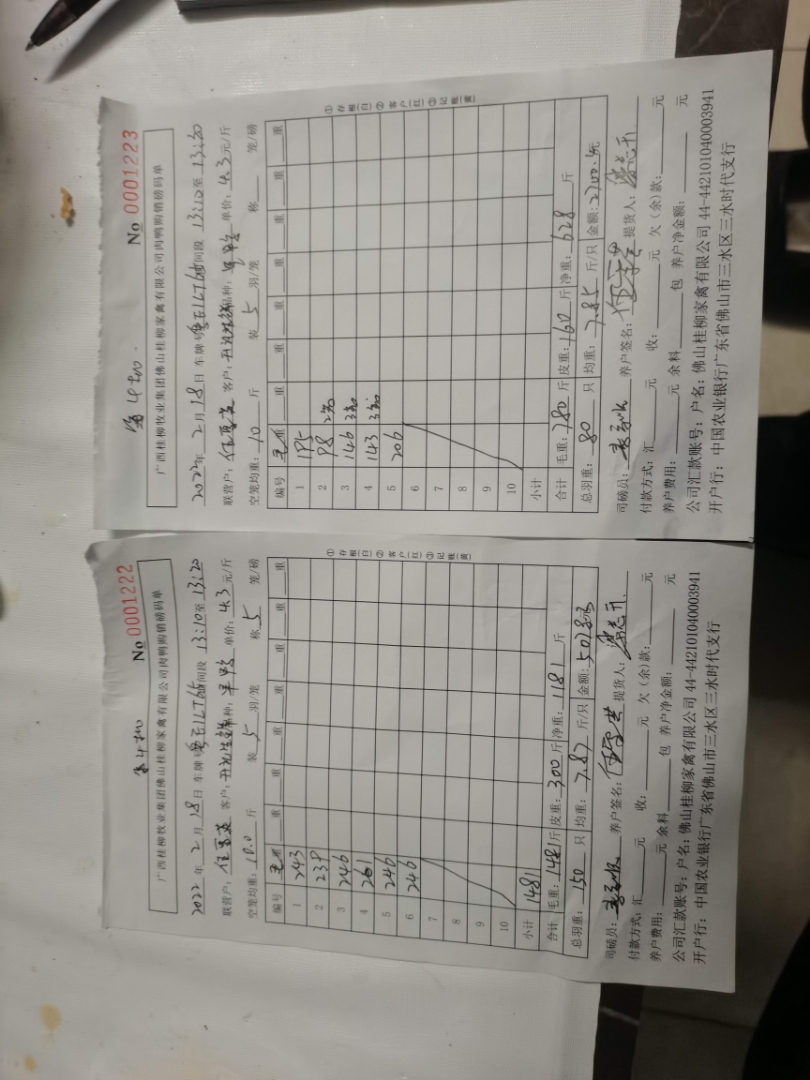 No 0001222
广西桂柳牧业集团佛山桂柳家禽有限公司肉鸭购销磅码单
2022年 2月18日 车牌 时间段 13:10至 13:20
联营户: 客户: 品种: 单价: 4.3元/斤
空笼均重: 10.0 斤 装 5 羽/笼 称 5 笼/磅
编号 毛重 重 重 重 重 重 重
1 243
2 239
3 246
4 261
5 246
6 246
7
8
9
10
小计 1481
合计 毛重: 1481斤 皮重: 300斤 净重: 1181 斤
总羽重: 150 只 均重: 7.87 斤/只 金额: 5078元
司磅员: 养户签名: 提货人:
付款方式: 汇 元 收: 元 欠(余)款: 元
养户费用: 元 余料 包 养户净金额: 元
公司汇款账号: 户名: 佛山桂柳家禽有限公司 44-442101040003941
开户行: 中国农业银行广东省佛山市三水区三水时代支行
①存根(白) ②客户(红) ③记账(黄)
No 0001223
广西桂柳牧业集团佛山桂柳家禽有限公司肉鸭购销磅码单
2022年 2月18日 车牌 时间段 13:10至 13:20
联营户: 客户: 品种: 单价: 4.3元/斤
空笼均重: 10 斤 装 5 羽/笼 称 笼/磅
编号 毛重 重 重 重 重 重 重
1 195
2 98 2笼
3 146 3笼
4 143 3笼
5 206
6
7
8
9
10
小计
合计 毛重: 780斤 皮重: 160斤 净重: 628 斤
总羽重: 80 只 均重: 7.85 斤/只 金额: 2700.4元
司磅员: 养户签名: 提货人:
付款方式: 汇 元 收: 元 欠(余)款: 元
养户费用: 元 余料 包 养户净金额: 元
公司汇款账号: 户名: 佛山桂柳家禽有限公司 44-442101040003941
开户行: 中国农业银行广东省佛山市三水区三水时代支行
①存根(白) ②客户(红) ③记账(黄)